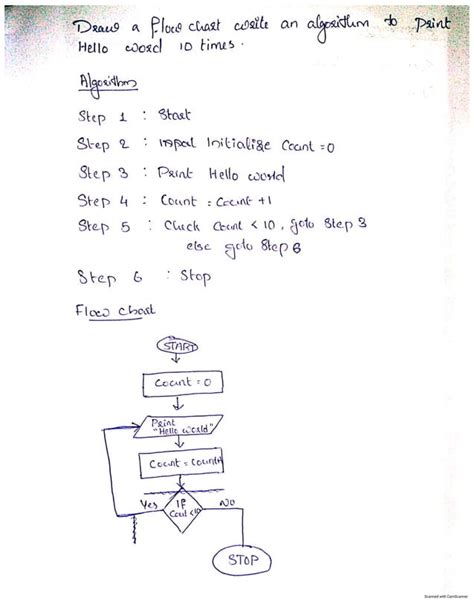 Draw a flow chart write an algorithm to Print
Hello word 10 times.
Algorithm
Step 1 : Start
Step 2 : Initialize Count = 0
Step 3 : Print Hello world
Step 4 : Count = Count +1
Step 5 : Check Count < 10, goto Step 3
else goto Step 6
Step 6 : Stop
Flow chart
START
Count = 0
Print
"Hello world"
Count = Count+1
Yes
IF
Count <10
No
STOP
Scanned with CamScanner